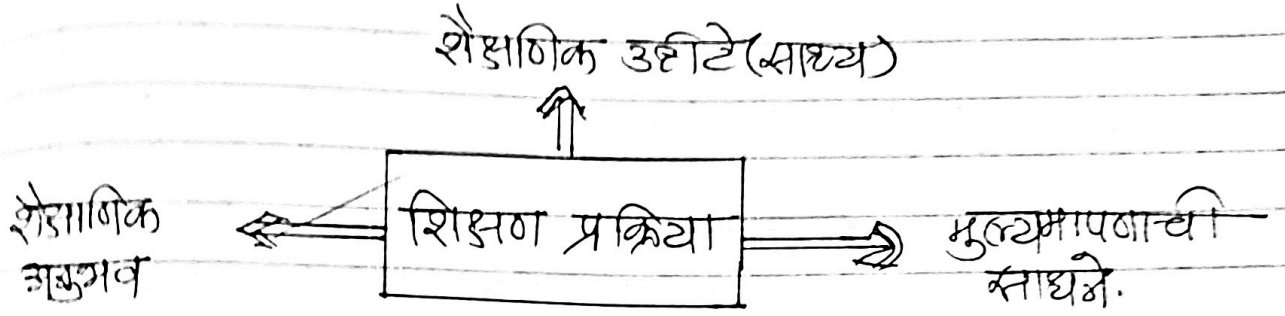 शैक्षणिक उद्दीटे (साध्य)
शैक्षणिक
अनुभव
शिक्षण प्रक्रिया
मुल्यमापणाची
साधने.